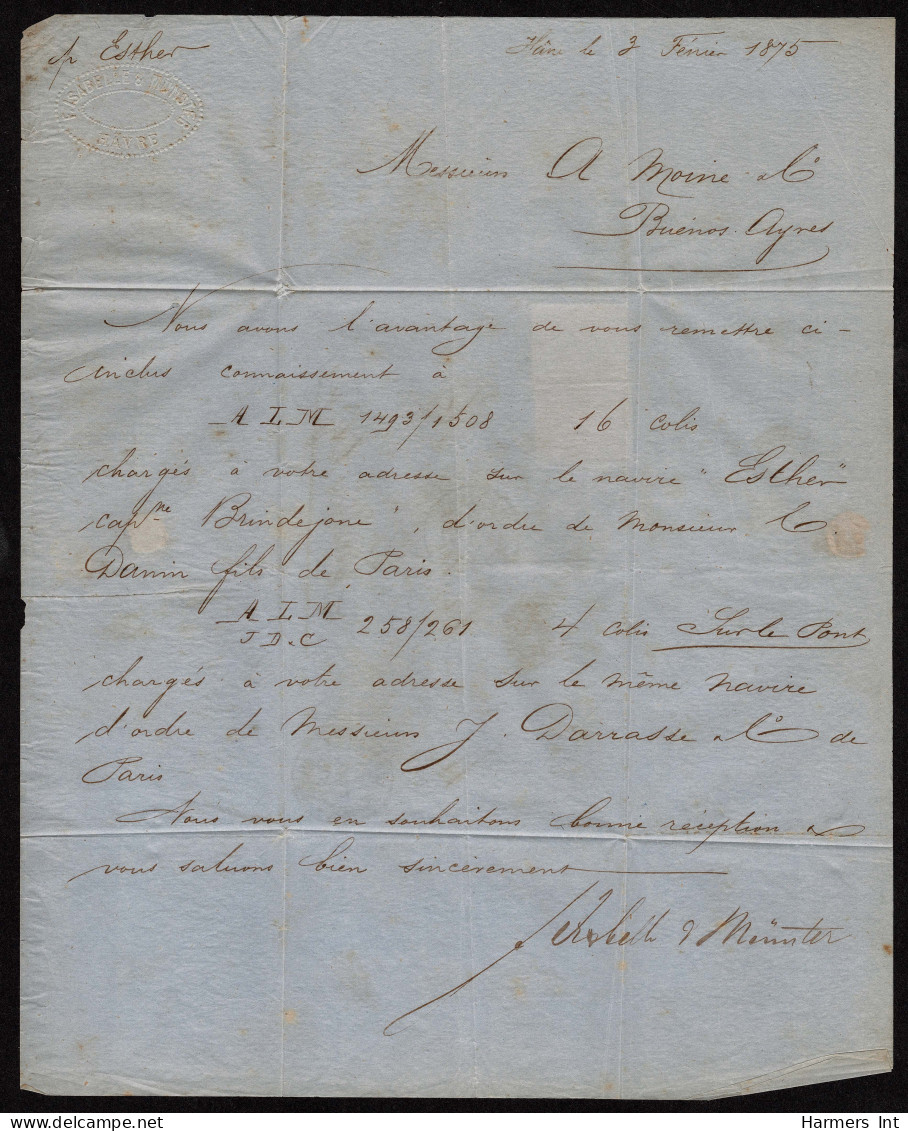 p/ Esther
Hâvre le 3 Février 1875
HAVRE
Messieurs A Moine & Co
Buénos-Ayres
Nous avons l'avantage de vous remettre ci-
inclus connaissement à
A L M 1493/1508 16 colis
chargés à votre adresse sur le navire "Esther"
capne Brindejonc", d'ordre de Monsieur C
Danin fils de Paris.
A L M
J D. C 258/261 4 colis Sur le Pont
chargés à votre adresse sur le même navire
d'ordre de Messieurs J. Darrasse & Co de
Paris
Nous vous en souhaitons bonne réception &
vous saluons bien sincèrement
& Münster
Harmers Int